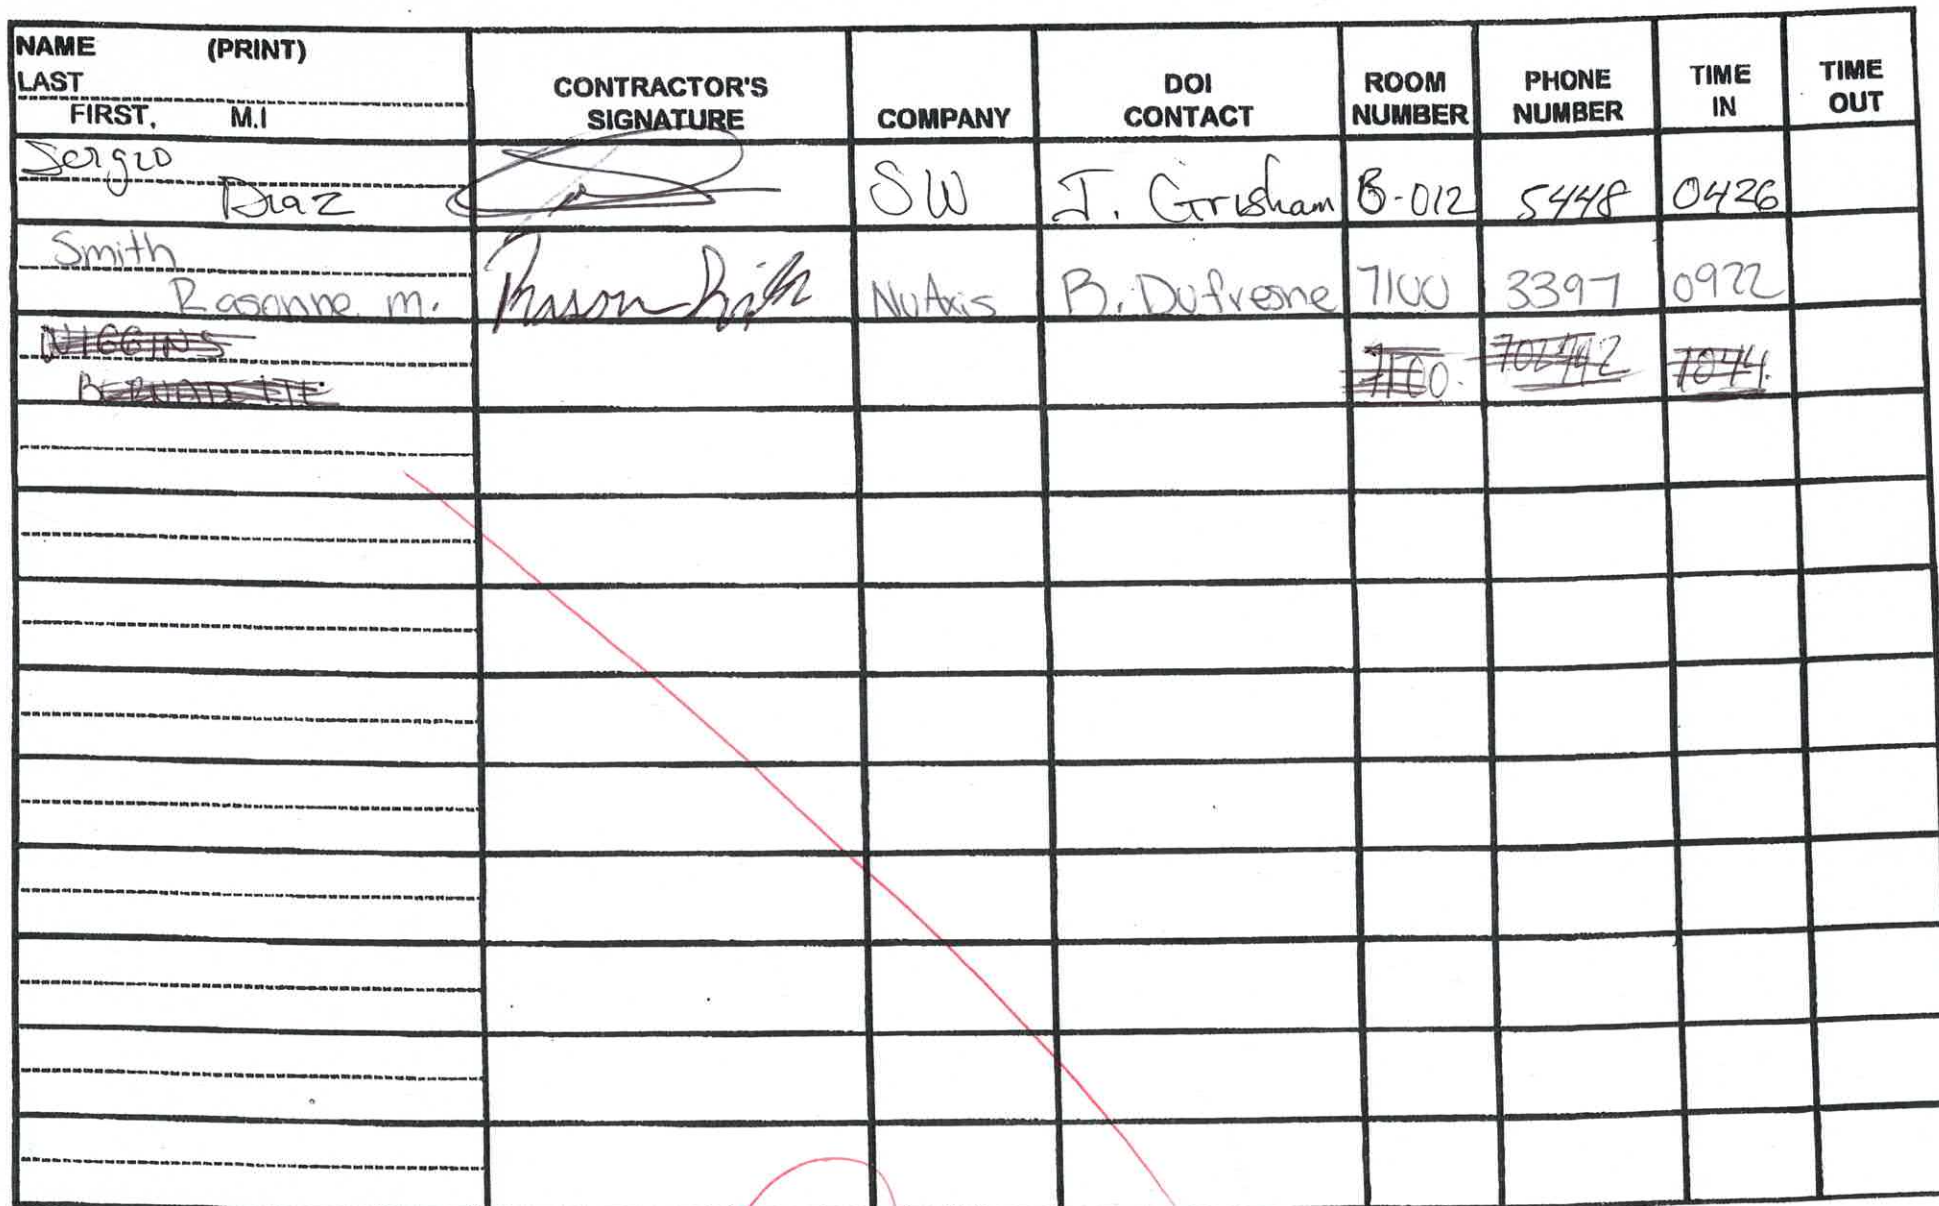 NAME (PRINT)
LAST
FIRST, M.I
CONTRACTOR'S
SIGNATURE
COMPANY
DOI
CONTACT
ROOM
NUMBER
PHONE
NUMBER
TIME
IN
TIME
OUT
Sergio
Diaz
SW
J. Grisham
B-012
5448
0426
Smith
Rasonne m.
NuAxis
B. Dufresne
7100
3397
0922
WIGGINS
BERNADETTE
7100.
1044.